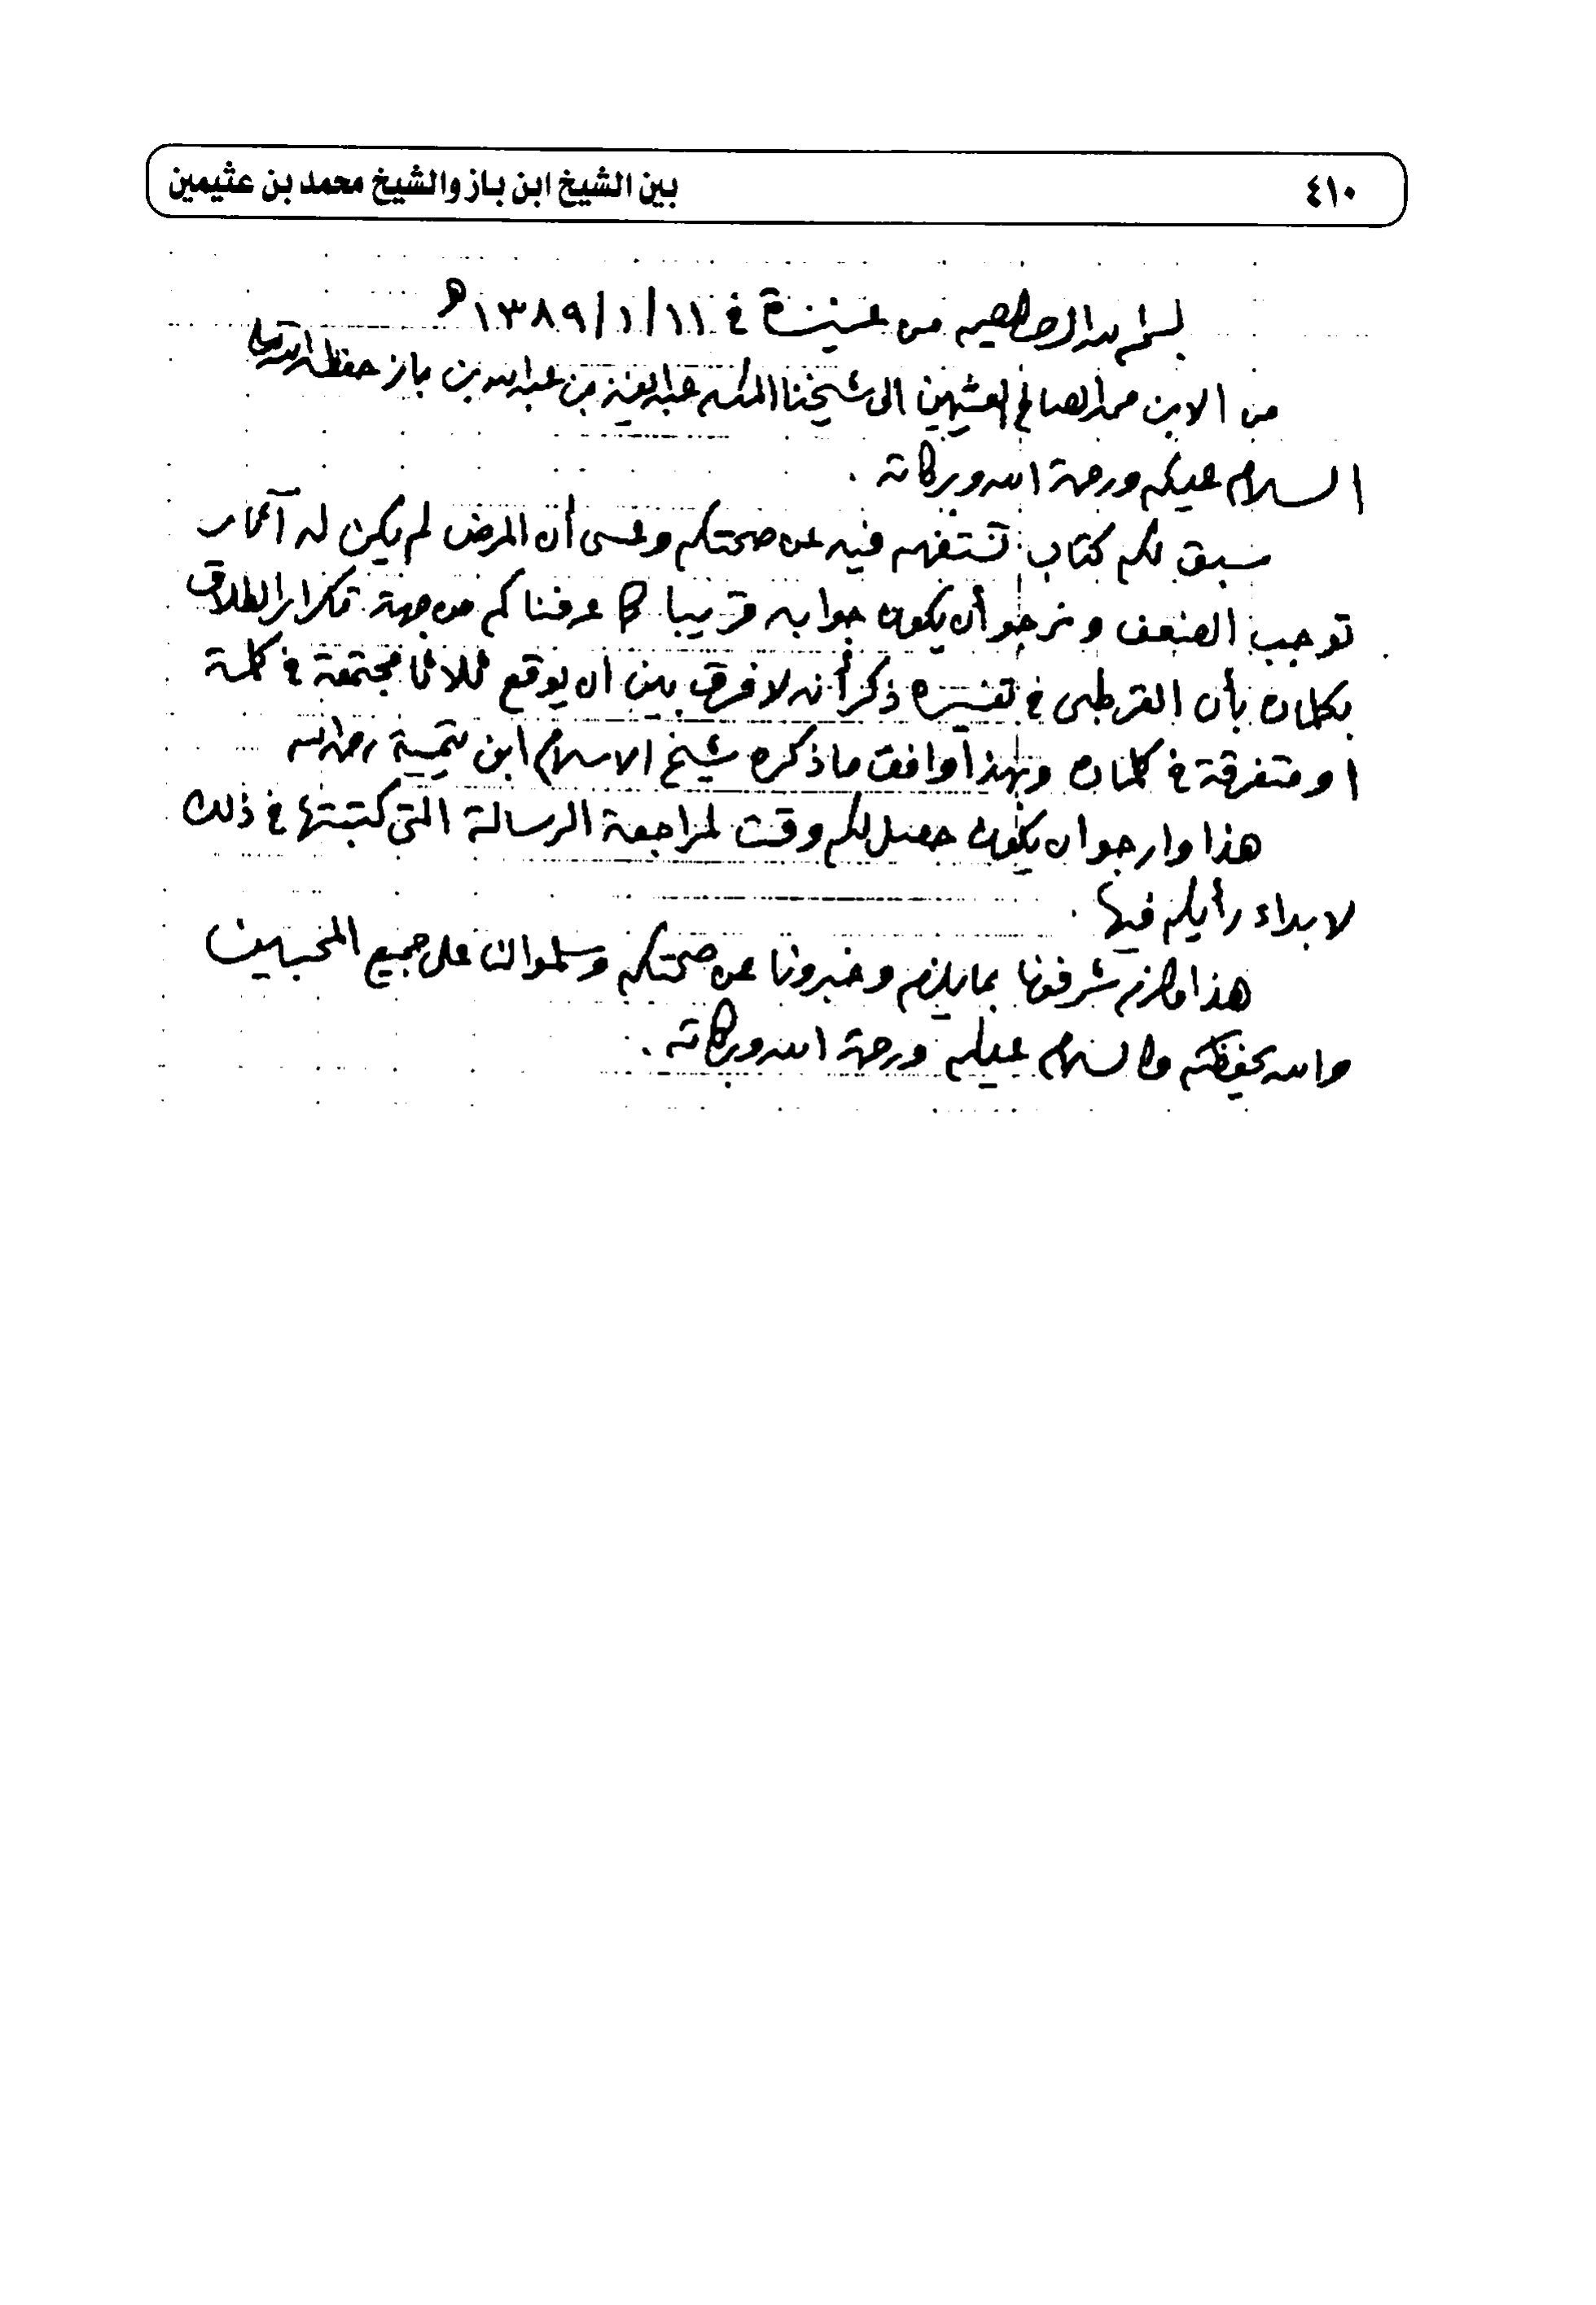 ٤١٠
بين الشيخ ابن باز والشيخ محمد بن عثيمين
بسم الله الرحمن الرحيم من عنيزة في ١٣٨٩/١/١١ هـ
من الابن محمد الصالح العثيمين الى شيخنا المكرم عبد العزيز بن عبد الله بن باز حفظه الله تعالى
السلام عليكم ورحمة الله وبركاته .
سبق لكم كتاب نستفهم فيه عن صحتكم وعسى أن المرض لم يكن له آثار
توجب الضعف ونرجو أن يكون جوابه قريبا كما عرفناكم من جهة تكرار الطلاق
بكلمات بأن القرطبى في تفسيره ذكر أنه لا فرق بين ان يوقع ثلاثا مجتمعة في كلمة
او متفرقة في كلمات وبهذا وافق ما ذكره شيخ الاسلام ابن تيمية رحمه الله
هذا وارجو ان يكون حصل لكم وقت لمراجعة الرسالة التى كتبتها في ذلك
لابداء رأيكم فيها .
هذا ما لزم شرفونا بما يلزم وخبرونا عن صحتكم وسلموا لنا على جميع المحبين
والله يحفظكم والسلام عليكم ورحمة الله وبركاته .